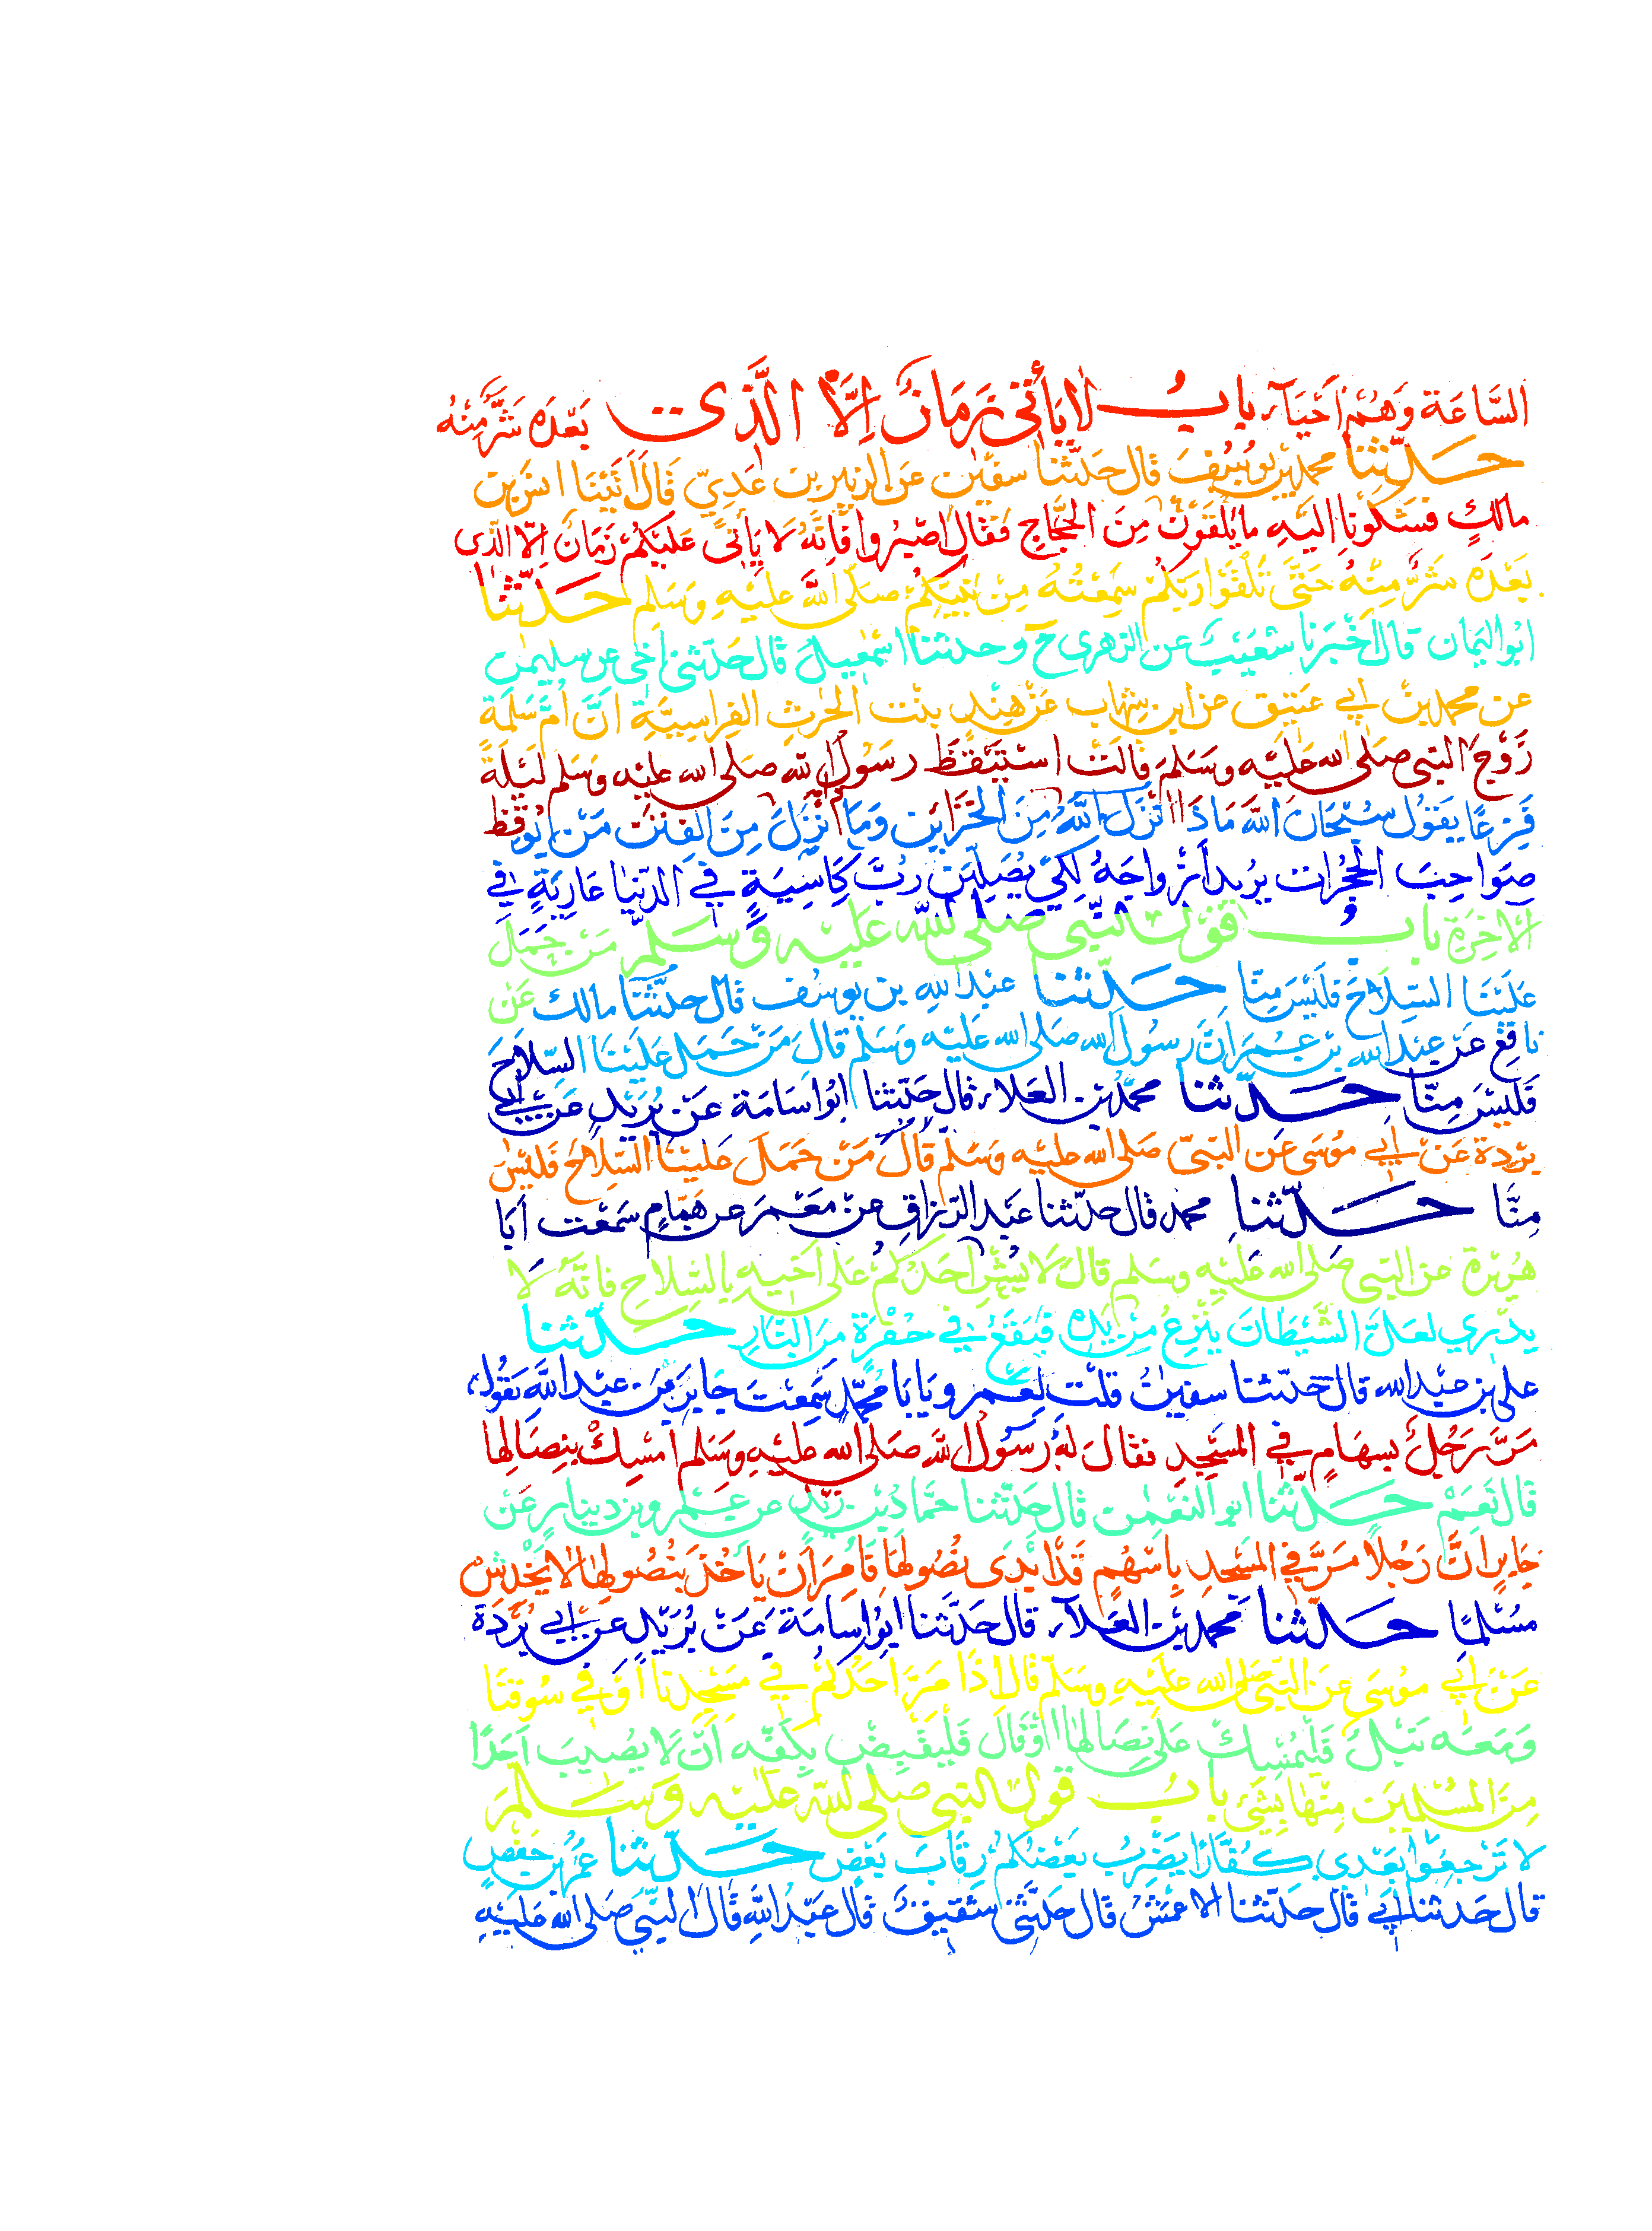 السَّاعَة وَهُمْ اَحْيَآء بابُ لا يَأْتى زَمَانٌ اِلَّا الَّذى بَعْدَه شَرٌّ مِنْهُ
حَدّثنا محمد بن يوسُفَ قال حَدّثنا سفيٰن عَن الزبير بن عَدِيّ قَالَ اَتَيْنَا انسَ بن
مالكٍ فشكونا اليَهِ ما يَلقَوْنَ مِنَ الحَجَّاجِ فقال اصْبِرُوا فَانَّهُ لَا يَأتى عَليَكُمْ زَمَانٌ اِلّا الّذى
بَعْدَه شَرٌّ مِنْهُ حَتَّى تَلْقَوْا رَبّكُمْ سَمِعْتُهُ مِنْ نَبيّكُمْ صَلّى اللهُ عليْهِ وَسَلم حَدّثنا
ابُو اليَمان قال اَخْبَرنا شعَيْبٌ عن الزهرى ح وحدثنا اسْمٰعيلُ قال حَدّثنى اَخى عن سليمٰن
عن محمد بنْ ابي عَتِيق عن ابن شِهاب عَنْ هِنْدٍ بنْت الحٰرثِ الفِراسِيَّةِ انَّ اُمَّ سَلَمَةَ
زَوْجَ النبى صَلى الله عَليَهِ وسَلمَ قالَتْ اسْتَيْقَظَ رسَوُلُ الله صَلى الله عليْه وَسَلم لَيْلَةً
فَزِعًا يَقوُل سُبْحَانَ اللهَ مَاذَا اَنْزَلَ اللّهُ مِنَ الخَزَائِن وَمَا اُنْزِلَ مِنَ الفِتَنْ مَنْ يُوقظ
صَوَاحِبَ الحُجُرات يريد اَزْواجَهُ لِكَىْ يُصَلِّيَن رُبَّ كَاسِيَةٍ فِي الدّنيا عَارِيَةٍ في
الاٰخِرَةِ بابُ قَوْل النّبى صَلى الله عَليْه وَسَلمَّ مَنْ حَمَلَ
عَليْنَا السّلاحَ فليَسَ مِنّا حَدّثنا عبدُ اللهِ بن يوسُف قال حدثّنا مالك عَن
نافِعٍ عَنْ عبد الله بن عُمرَ انَّ رَسُول الله صَلى الله عَليْه وَسَلم قالَ مَنْ حَمَل عَلَيْنَا السِّلاحَ
فَليْسَ مِنّا حَدّثنا محمّد بن العَلاء قال حَدّثنا ابُو اسَامَة عَنْ بُرَيْدٍ عَن ابي
برْدة عَنْ ابي مُوسَى عَن النبىّ صَلى الله عليْه وَسَلّم قالَ مَنْ حَمَلَ عَليْنَا السّلاحَ فَليْسَ
مِنَّا حَدّثنا محمد قال حدثنا عبد الرّزاق عن مَعْمَر عن هَمّامٍ سَمعْت اَبا
هُرَيْرة عن النبى صَلى الله عَليْهِ وسَلم قالَ لا يُشيْر اَحَدُكمْ عَلى اَخيهِ بالسّلاحِ فانّهُ لا
يدْري لعَلَّ الشّيْطَانَ يَنْزِعُ مِنْ يَدِه فَيَقَعُ في حُفْرَةٍ مِنَ النّارِ حَدّثنا
على بن عبْد الله قال حَدّثنا سفينٰ قلْت لِعَمرو يَا بَا محمّدٍ سَمِعْتَ جَابرَ بْنَ عبْد اللّهِ يَقُول
مَرَّ رَجُلٌ بِسهَامٍ فِي المسْجِدِ فقالَ لَهُ رَسوُلُ اللهِ صَلى الله عليْهِ وسَلم اَمْسِكْ بنِصَالِها
قالَ نَعَمْ حَدّثنا ابو النعْمٰن قال حَدّثنا حَمّادُ بْن زيْدٍ عن عَمرو بن دينار عَنْ
جَابرٍ انَّ رَجُلاً مَرَّ فِي المسْجدِ بِاسْهُمٍ قَدْ اَبْدَى نصُولهَا فَاُمِرَ اَنْ يَاْخُذَ بِنُصُولِهٰا لا يَخْدِشُ
مُسْلمًا حَدّثنا محمدُ بْن العَلآء قال حَدّثنا ابُو اسامَة عَنْ بُرَيْدٍ عَن ابي بُرْدَة
عَنْ ابي موُسَى عَن النّبى صَلى الله عليْهِ وسَلّم قال اذَا مَرَّ احَدُكمْ في مَسْجِدنا اَوْ في سُوقنَا
وَمعَه نَبْلٌ فَليُمْسِكْ عَلى نِصَالهَا اوْ قالَ فَليَقْبِضْ بِكَفّه انْ لا يصُيبَ اَحَدًا
مِنَ المُسْلمِينَ مِنْهَا بشَيْءٍ بابُ قَول النبى صَلى الله عَليْه وَسَلمَ
لا تَرْجعُوا بَعْدى كُفّارًا يَضْربُ بَعْضُكُمْ رقَابَ بَعْض حَدّثنا عُمَرُ بن حَفْصٍ
قال حَدثنا ابي قال حَدّثنا الاَعْمَشُ قال حَدّثنى شقيقٌ قال عَبْدُ اللّهِ قال النبيّ صَلى الله عَليْهِ